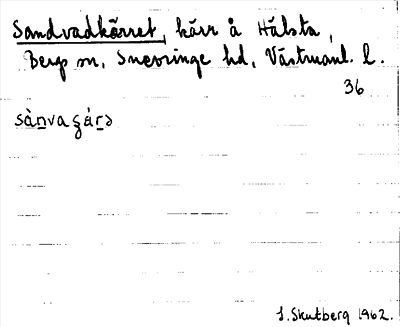 Sandvadkärret, kärr å Hälsta,
Bergs sn, Snevringe hd, Västmanl. l.
36
sàn̲vaʂár̲ə
S. Skutberg 1962.